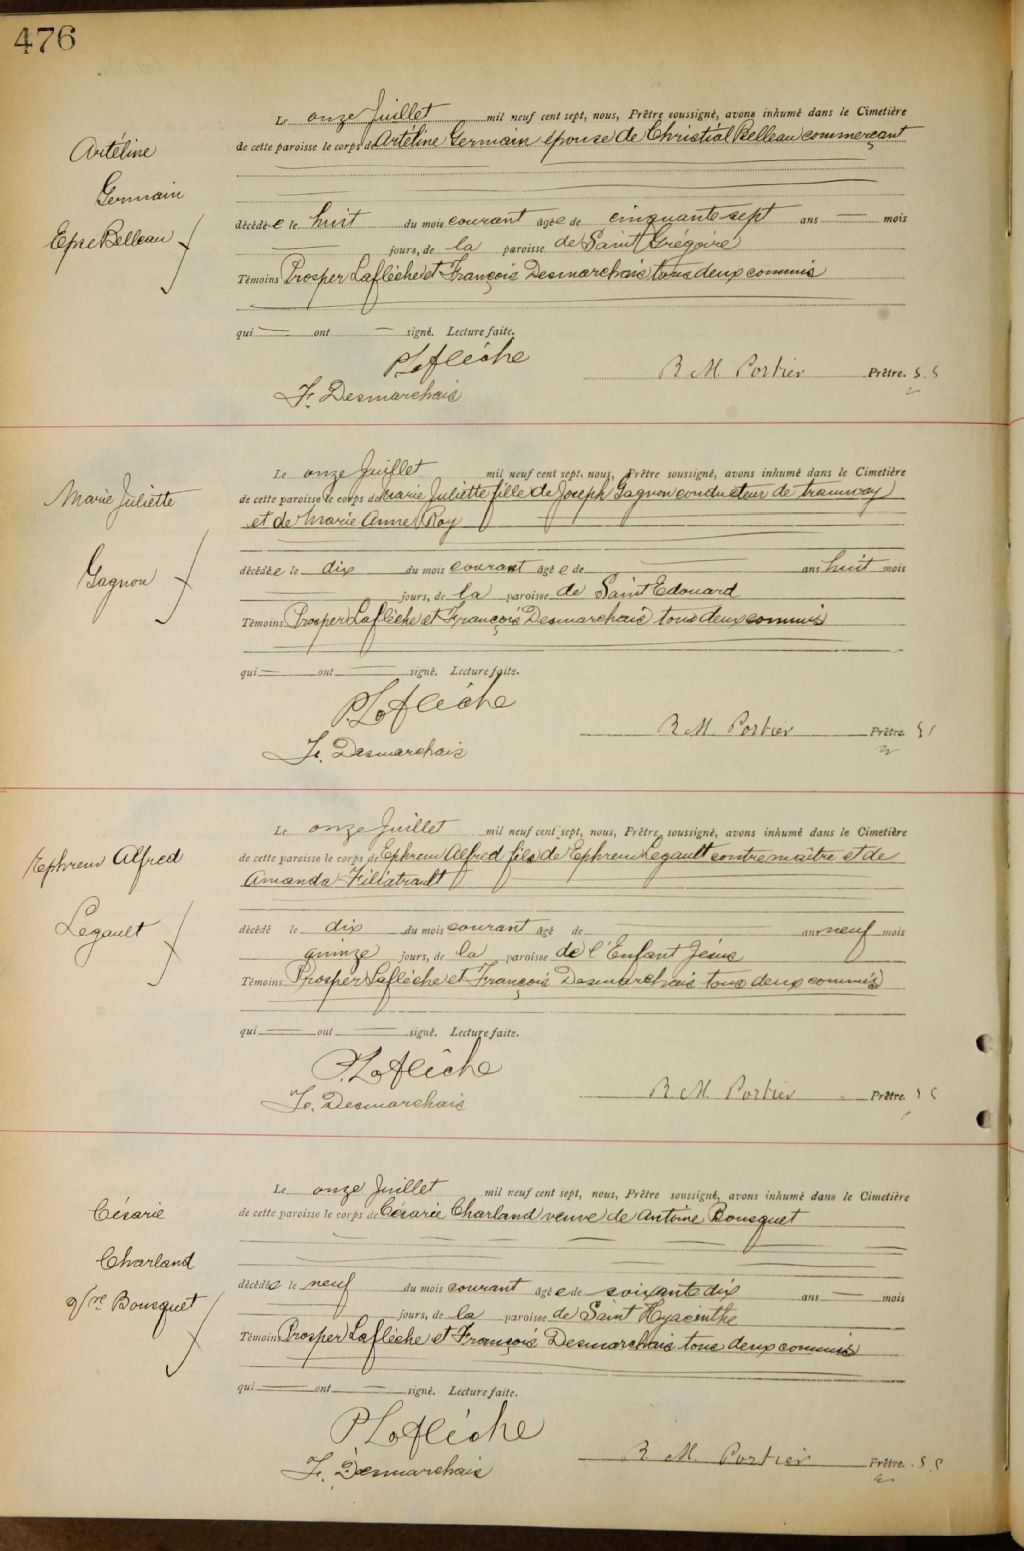 476
Le onze Juillet mil neuf cent sept, nous, Prêtre soussigné, avons inhumé dans le Cimetière
de cette paroisse le corps de Artéline Germain épouse de Christial Belleau commerçant
Artéline
Germain
Epse Belleau
décédée le huit du mois courant âgée de cinquante sept ans — mois
jours, de la paroisse de Saint Grégoire
Témoins Prosper Laflèche et François Desmarchais tous deux commis
qui — ont — signé. Lecture faite.
P. Laflèche
R M Portier Prêtre. S. S
F. Desmarchais
Le onze Juillet mil neuf cent sept, nous, Prêtre soussigné, avons inhumé dans le Cimetière
de cette paroisse le corps de Marie Juliette fille de Joseph Gagnon conducteur de tramway
et de Marie Anne Roy
Marie Juliette
Gagnon
décédée le dix du mois courant âgée de — ans huit mois
jours, de la paroisse de Saint Edouard
Témoins Prosper Laflèche et François Desmarchais tous deux commis
qui — ont — signé. Lecture faite.
P. Laflèche
R M. Portier Prêtre
F. Desmarchais
Le onze Juillet mil neuf cent sept, nous, Prêtre soussigné, avons inhumé dans le Cimetière
de cette paroisse le corps de Ephrem Alfred fils de Ephrem Legault contremaître et de
Amanda Filiatrault
Ephrem Alfred
Legault
décédé le dix du mois courant âgé de — ans neuf mois
quinze jours, de la paroisse de l'Enfant Jésus
Témoins Prosper Laflèche et François Desmarchais tous deux commis
qui — ont — signé. Lecture faite.
P. Laflèche
R M. Portier Prêtre.
F. Desmarchais
Le onze Juillet mil neuf cent sept, nous, Prêtre soussigné, avons inhumé dans le Cimetière
de cette paroisse le corps de Césarie Charland veuve de Antoine Bousquet
Césarie
Charland
Vve Bousquet
décédée le neuf du mois courant âgée de soixante dix ans — mois
jours, de la paroisse de Saint Hyacinthe
Témoins Prosper Laflèche et François Desmarchais tous deux commis
qui — ont — signé. Lecture faite.
P Laflèche
R M. Portier Prêtre. S. S
F. Desmarchais